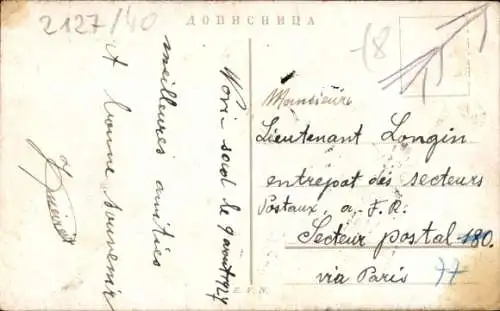 2127/40
ДОПИСНИЦА
18
Novi-Sad le 9 aout 1927
meilleures amitiés
et bonne souvenir
Monsieur
Lieutenant Longin
entrepot des secteurs
Postaux, a. F. R.
Secteur postal 180.
via Paris 77
E.V.N.